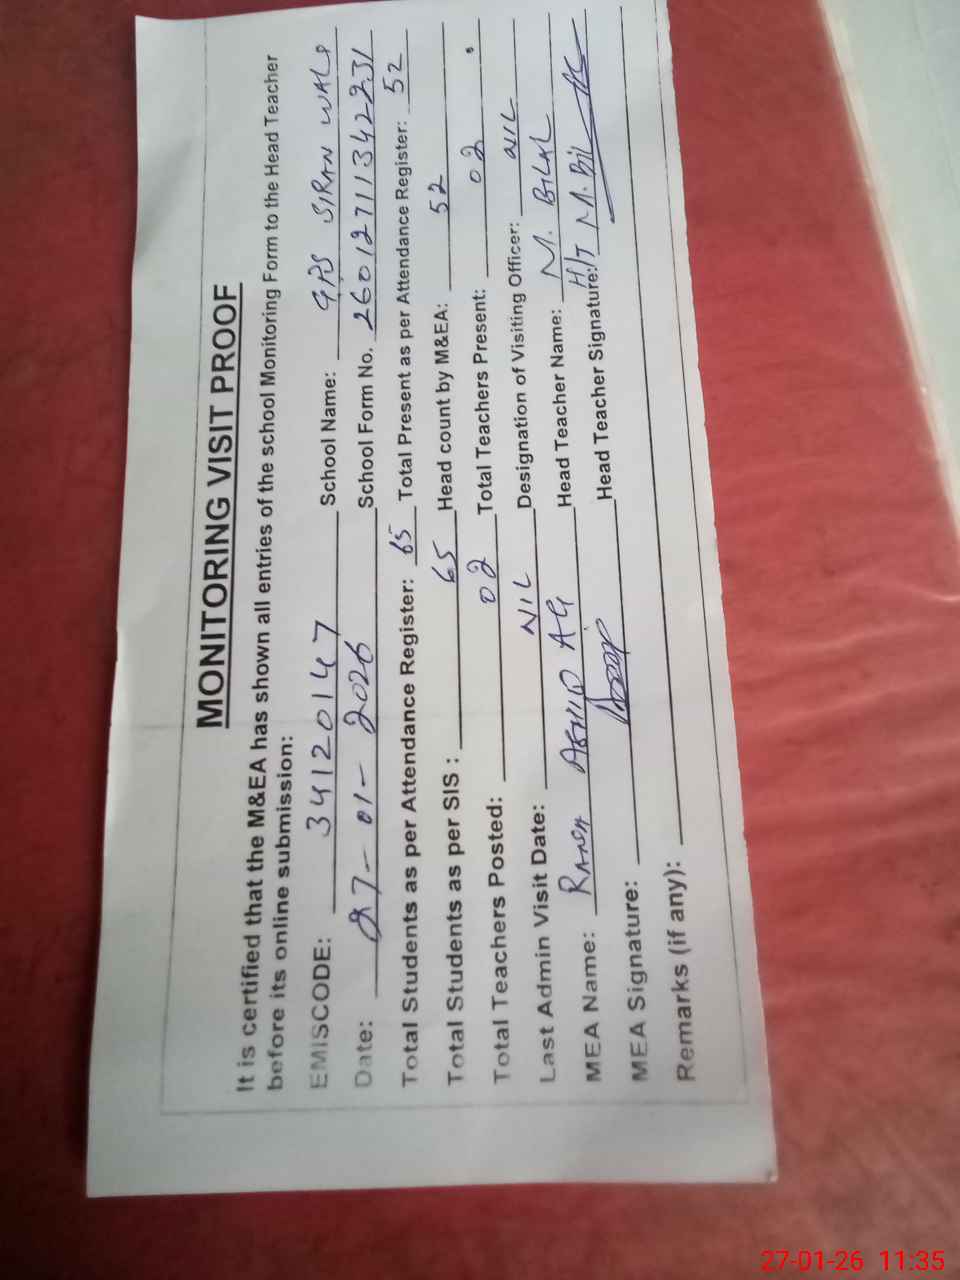 MONITORING VISIT PROOF
It is certified that the M&EA has shown all entries of the school Monitoring Form to the Head Teacher
before its online submission:
EMISCODE: 34120147 School Name: GPS SIRAN WALI
Date: 27-01-2026 School Form No. 260127113422231
Total Students as per Attendance Register: 65 Total Present as per Attendance Register: 52
Total Students as per SIS : 65 Head count by M&EA: 52
Total Teachers Posted: 02 Total Teachers Present: 02
Last Admin Visit Date: NIL Designation of Visiting Officer: NIL
MEA Name: RANA Head Teacher Name: M. BILAL
MEA Signature: Head Teacher Signature: H/T M. Bil
Remarks (if any):
27-01-26 11:35